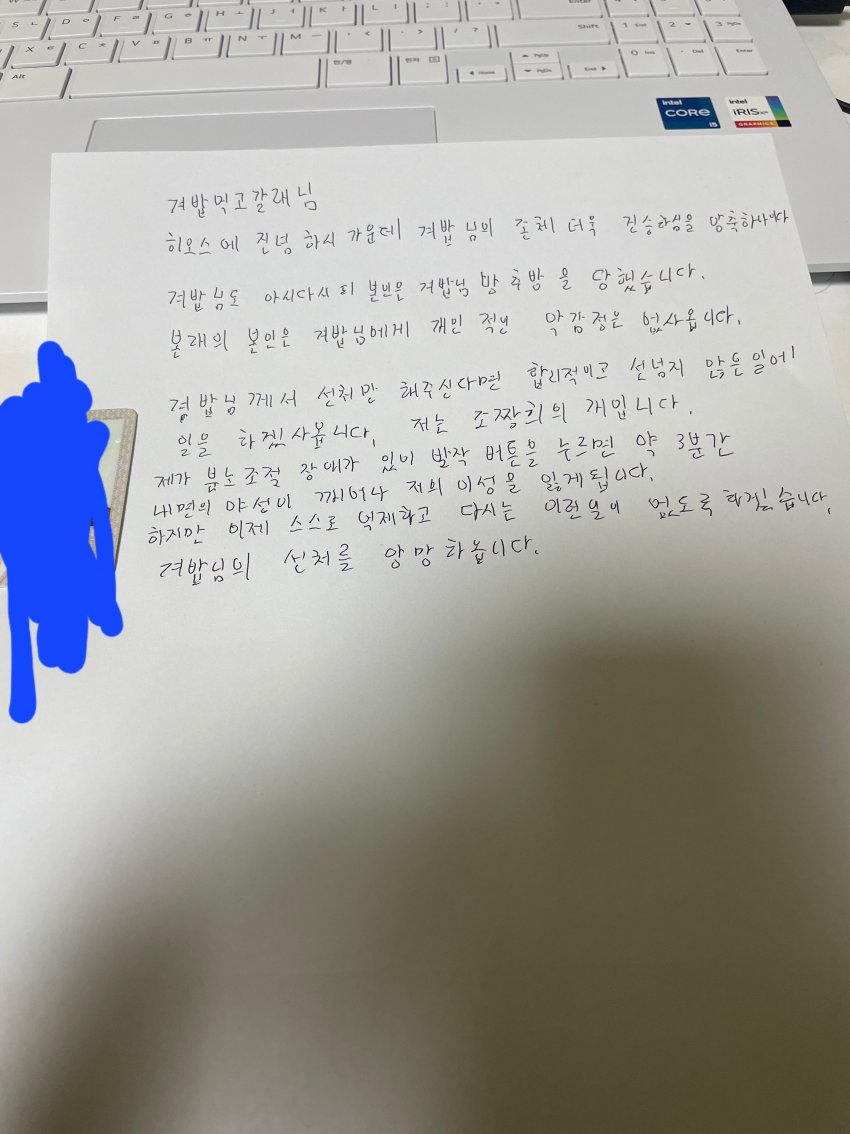 S ㄴ D ㅇ F ㄹ G ㅎ H ㅗ J ㅓ K ㅏ L ㅣ ; : Enter
X ㅌ C ㅊ V ㅍ B ㅠ N ㅜ M ㅡ , < . > / ? Shift 1 End 2 3 PgDn
Alt 한/영 한자 Home PgUp PgDn End 0 Ins . Del Enter
intel CORE i5
intel IRIS Xe GRAPHICS
겨밥먹고갈래님
히오스에 진념 하시 가운데 겨밥님의 존체 더욱 진승하심을 앙축하나이다
겨밥님도 아시다시피 본인은 겨밥님 방 추방을 당했습니다.
본래의 본인은 겨밥님에게 개인 적인 악감정은 없사옵니다.
겸밥님께서 선처만 해주신다면 합리적이고 선넘지 않은일에
일을 하겠사옵니다. 저는 조짱희의 개입니다.
제가 분노조절 장애가 있어 발작 버튼을 누르면 약 3분간
내면의 야성이 깨어나 저의 이성을 잃게됩니다.
하지만 이제 스스로 억제하고 다시는 이런일이 없도록 하겠습니다.
겨밥님의 선처를 앙망하옵니다.